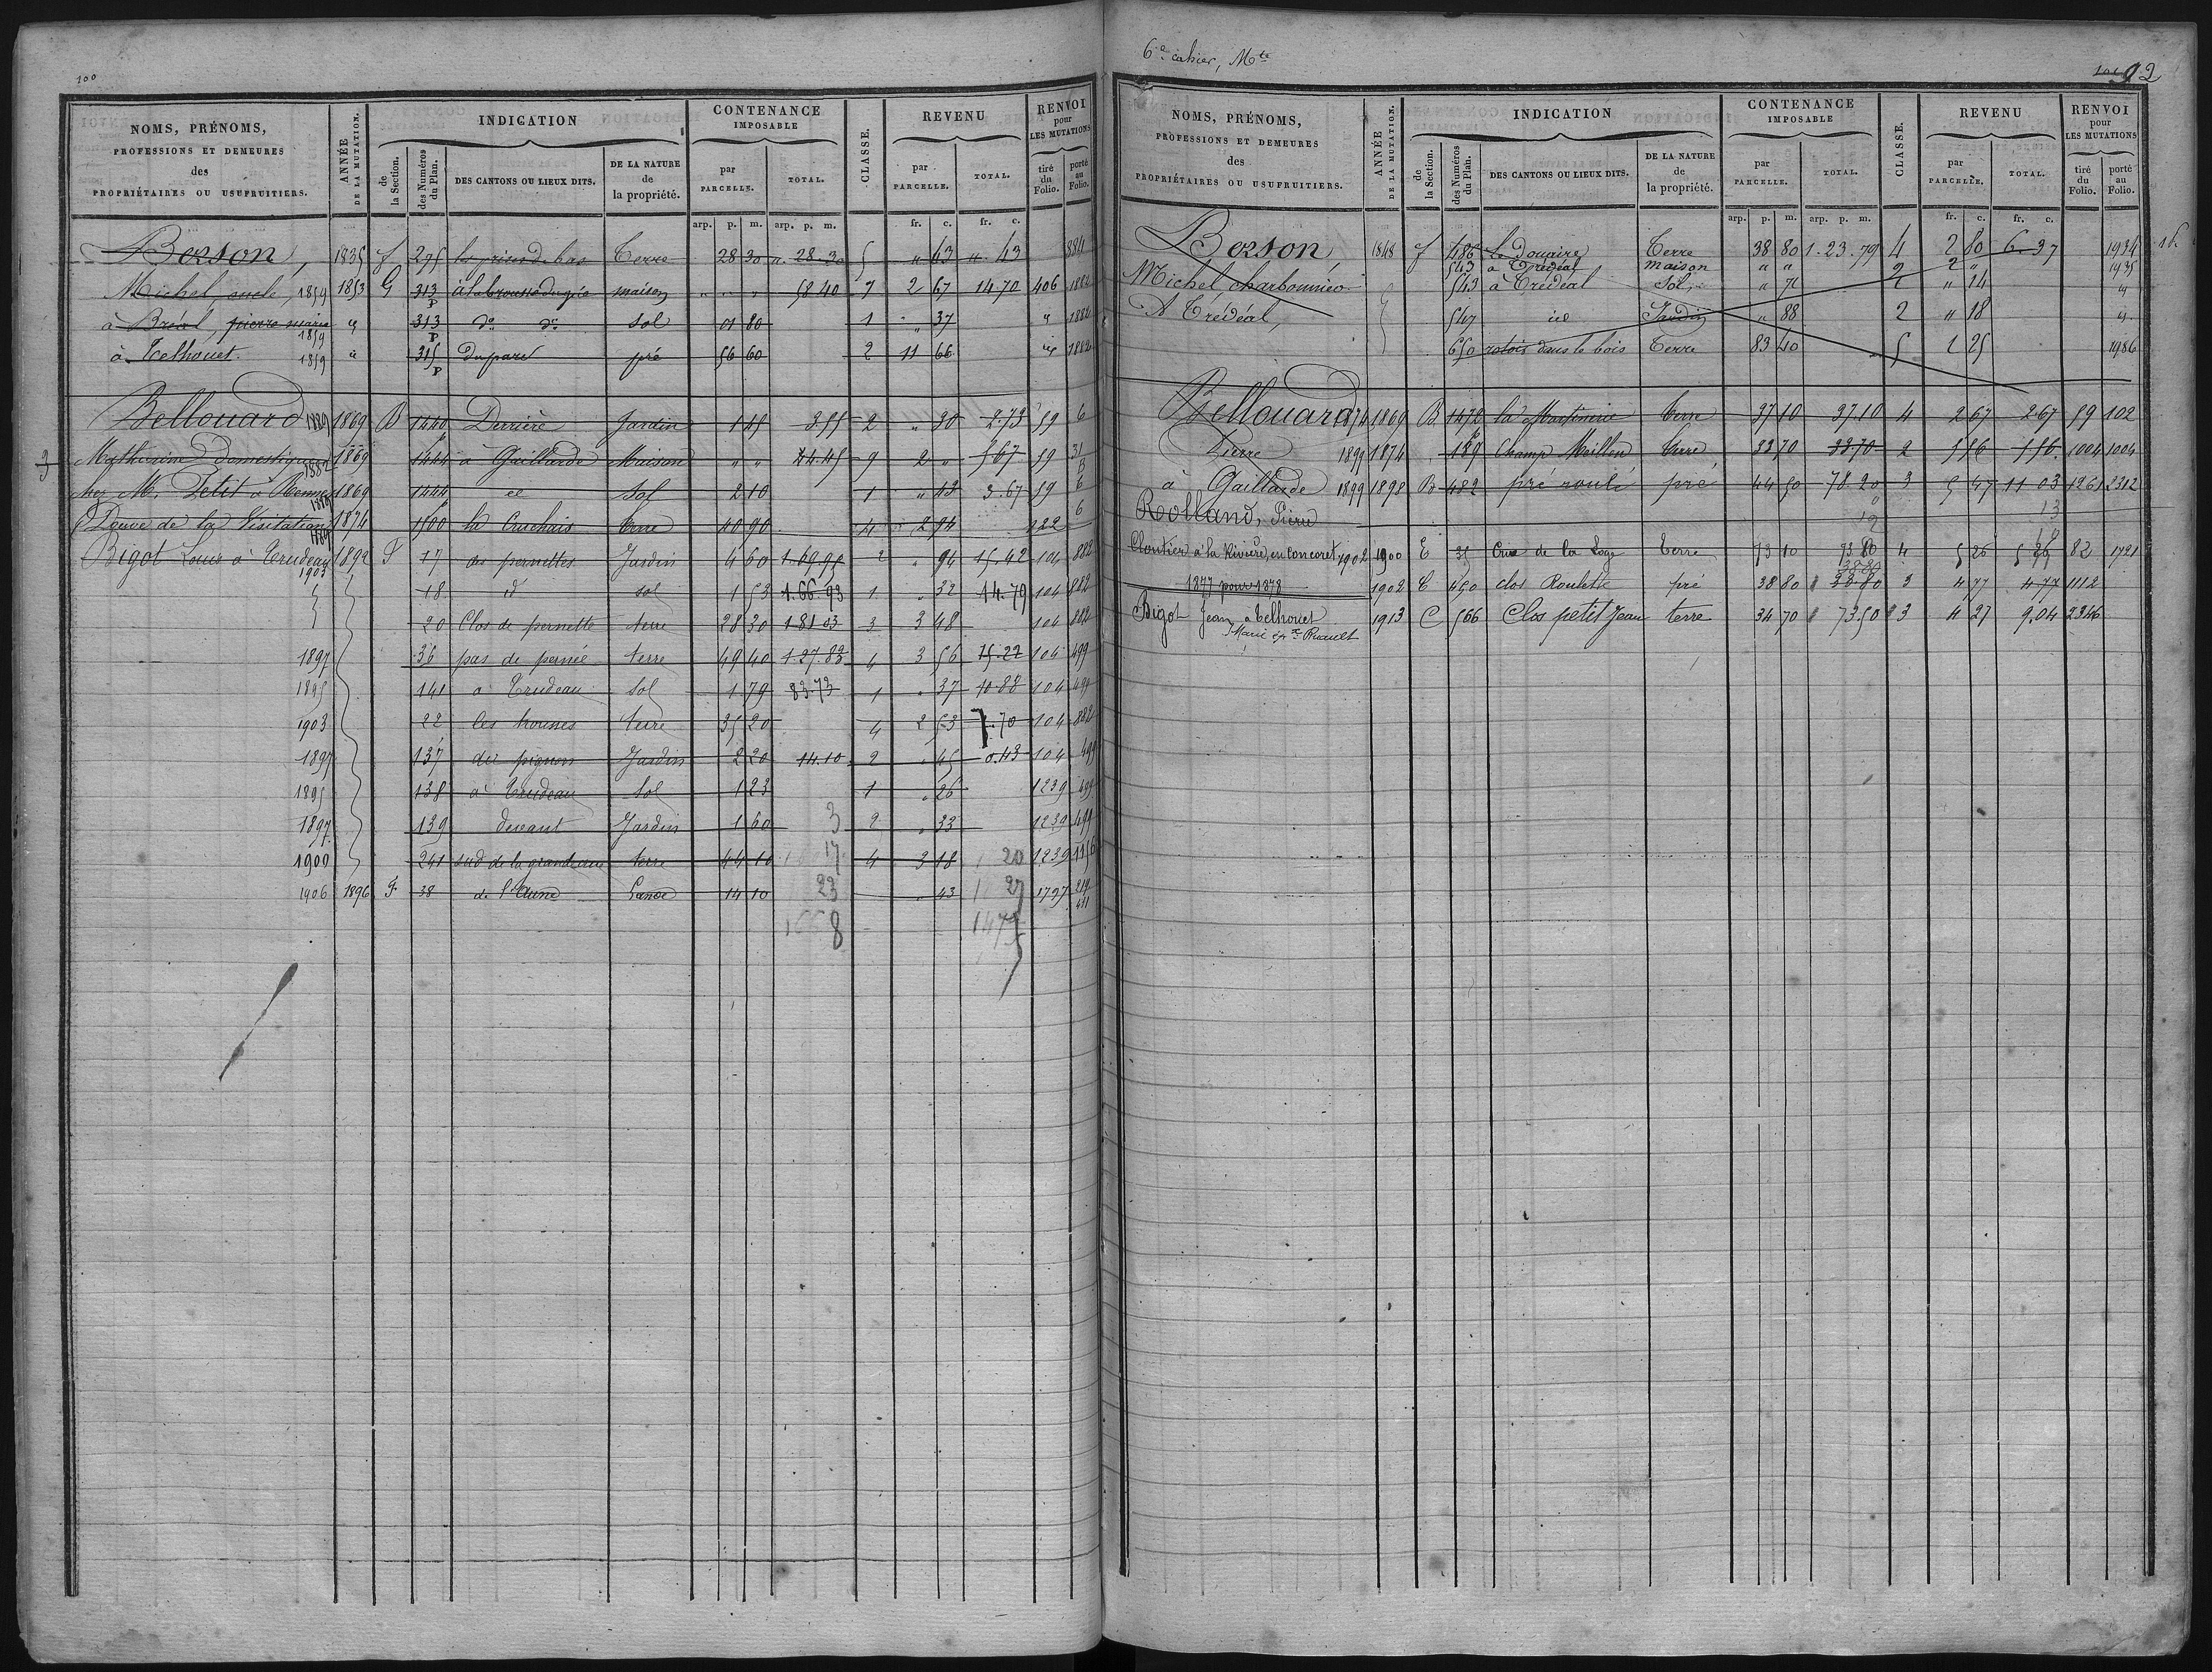 100
NOMS, PRÉNOMS,
PROFESSIONS ET DEMEURES
des
PROPRIÉTAIRES OU USUFRUITIERS.
ANNÉE
DE LA MUTATION.
INDICATION
de
la Section.
des Numéros
du Plan.
DES CANTONS OU LIEUX DITS.
DE LA NATURE
de
la propriété.
CONTENANCE
IMPOSABLE
par
PARCELLE.
TOTAL.
CLASSE.
REVENU
par
PARCELLE.
TOTAL.
RENVOI
pour
LES MUTATIONS
tiré
du
Folio.
porté
au
Folio.
arp. p. m. arp. p. m. fr. c. fr. c.
Berson, 1835 f 295 bas Terre 28 30 " 28 30 5 " 43 " 43 884
Michel, oncle, 1859 1853 G 313 p à la maison " " " 58 40 7 2 67 14.70 406 1882
à Bréal, pierre marie 1859 " 313 p do do sol 01 80 1 " 37 " 1882
à Telhouet. 1859 " 315 p Du parc pré 56 60 2 11 66 1882
Bellouard 1889 1869 B 1440 p Derrière Jardin 1 45 3.55 2 " 30 2.73 59 6
Mathurine domestique 1882 1869 1444 à Gaillarde Maison " " 44.45 9 2 " 5 67 59 31
chez M. Petit à Rennes 1889 1869 1444 sol 2 10 1 " 43 3.67 59 6
Veuve de la Visitation 1889 1874 1500 la terre 40 90 4 2 94 122 6
Bigot Louis à Trudeau 1903 1892 F 17 des pernettes Jardin 4 60 1.69.95 2 " 94 15.42 104 882
18 d° sol 1 53 1.66 93 1 " 32 14.79 104 882
20 Clos de pernette terre 28 30 1 81 03 3 3 48 104 882
1897 36 pas de pernée terre 49 40 1.37.83 4 3 56 15.22 104 499
1895 141 à Trudeau sol 1 79 83.73 1 " 37 10.88 104 499
1903 22 les housses terre 35 20 4 2 53 7.70 104 882
1897 137 du pignon Jardin 2 20 14.10 2 " 45 0.43 104 499
1895 138 à Trudeau sol 1 23 1 " 26 1239 499
1897 139 devant Jardin 1 60 3 2 " 33 1239 499
1909 241 sud de la grande terre 44 10 17 4 3 18 20 1239 1156
1906 1896 F 38 de l'Aune Lande 14 10 23 " 43 27 1727 219
8 1475
6e cahier, Mte
101 92
NOMS, PRÉNOMS,
PROFESSIONS ET DEMEURES
des
PROPRIÉTAIRES OU USUFRUITIERS.
ANNÉE
DE LA MUTATION.
INDICATION
de
la Section.
des Numéros
du Plan.
DES CANTONS OU LIEUX DITS.
DE LA NATURE
de
la propriété.
CONTENANCE
IMPOSABLE
par
PARCELLE.
TOTAL.
CLASSE.
REVENU
par
PARCELLE.
TOTAL.
RENVOI
pour
LES MUTATIONS
tiré
du
Folio.
porté
au
Folio.
arp. p. m. arp. p. m. fr. c. fr. c.
Berson, 1848 f 486 Le Douaire Terre 38 80 1.23.79 4 2 80 6.37 1934
543 à Trédéal maison " " 9 2 " 1935
Michel charbonnier 543 à Trédéal Sol " 71 1 " 14 "
A Trédéal, 547 id Jardin " 88 2 " 18 "
650 dans le bois Terre 83 40 5 1 25 1986
Bellouard 1874 1869 B 1472 la Martinerie terre 37 10 37.10 4 2 67 2.67 59 102
Pierre 1895 1874 189 Champ Terre 33 70 33 70 2 5 16 5 16 1004 1004
à Gaillarde 1899 1898 B 482 pré roulé pré 44 50 78.20 3 5 47 11 03 1261 2312
Rolland, Pierre 12 13
Cloutier à la Rivière, en Concoret 1902 1900 E 35 Croix de la Loge terre 73 10 73.80 4 5 26 5 26 82 1721
1877 pour 1878 1902 C 450 clos Roulette pré 38 80 38.80 3 4 77 4 77 1112
Bigot Jean à telhouet 1913 C 566 Clos petit Jean terre 34 70 73.50 3 4 27 9.04 2346
Marie Ruault